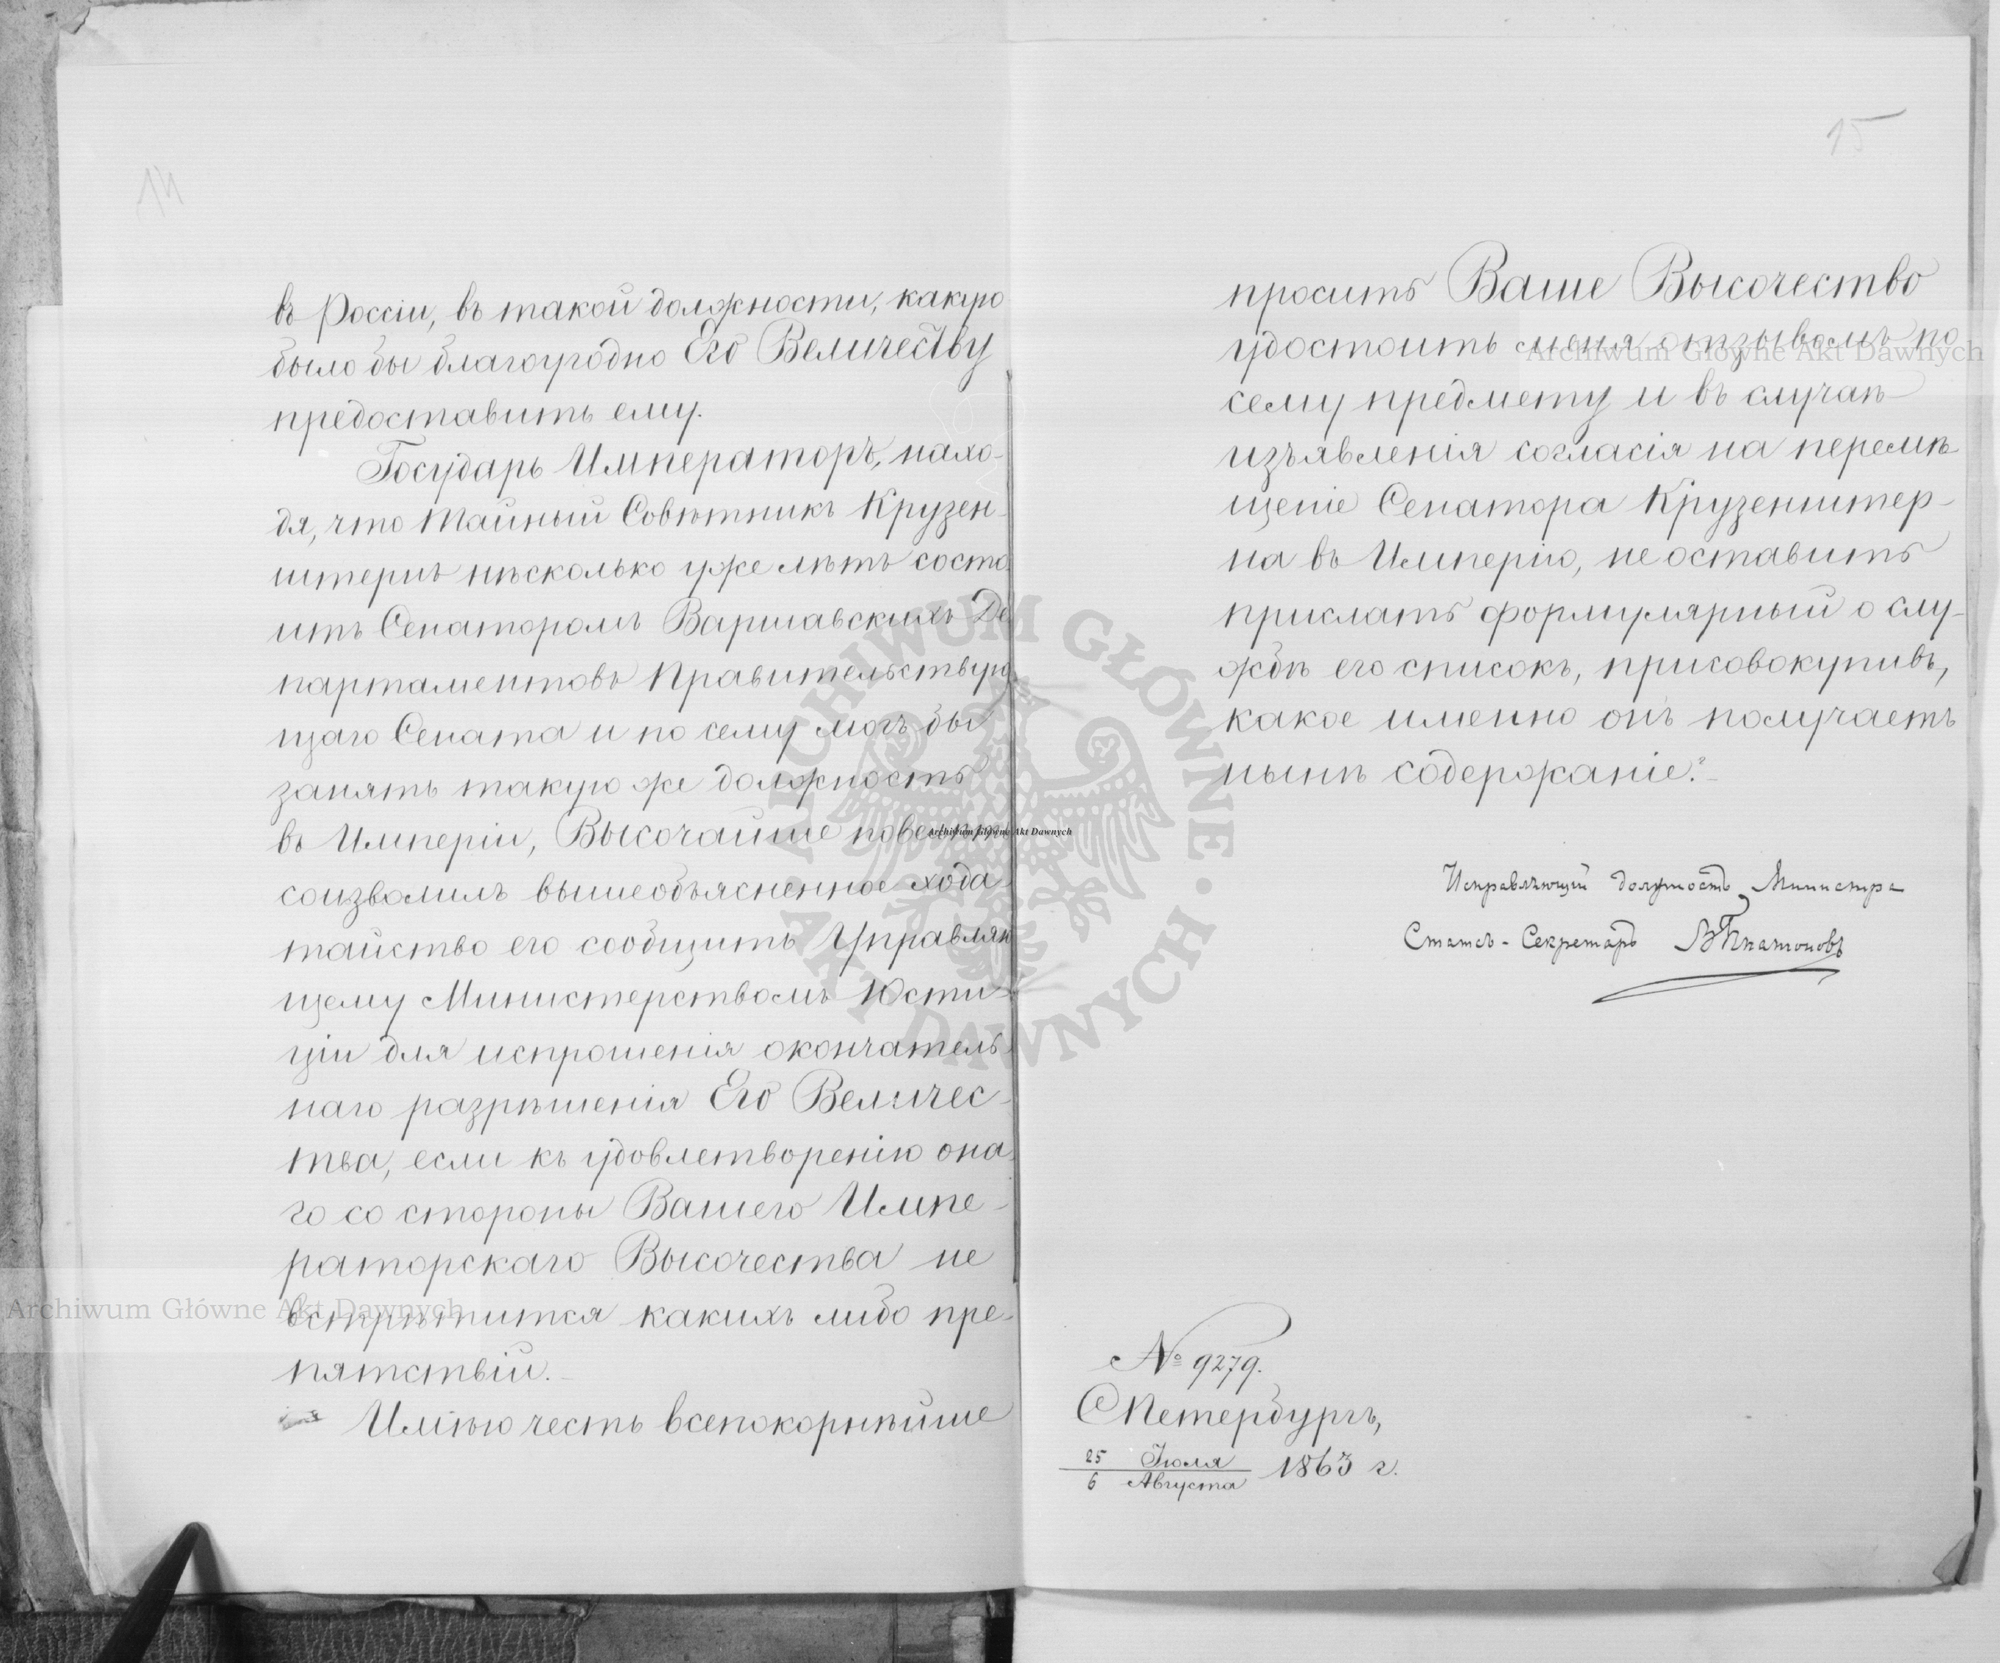 14
въ Россіи, въ такой должности, какую
было бы благоугодно Его Величеству
предоставить ему.
Государь Императоръ, нахо-
дя, что Тайный Совѣтникъ Крузен-
штернъ нѣсколько уже лѣтъ состо
итъ Сенаторомъ Варшавскихъ Де
партаментовъ Правительствую
щаго Сената и по сему могъ бы
занять такую же должность
въ Имперіи, Высочайше повелѣть
соизволилъ вышеобъясненное хода-
тайство его сообщить Управляю
щему Министерствомъ Юсти-
ціи для испрошенія окончатель-
наго разрѣшенія Его Величес-
тва, если къ удовлетворенію она
го со стороны Вашего Импе-
раторскаго Высочества не
встрѣтится какихъ либо пре-
пятствій.
Имѣю честь всепокорнѣйше
15
просить Ваше Высочество
удостоить меня отзывомъ по
сему предмету и въ случаѣ
изъявленія согласія на перемѣ
щеніе Сенатора Крузенштер-
на въ Имперію, не оставить
прислать формулярный о слу-
жбѣ его списокъ, присовокупивъ,
какое именно онъ получаетъ
нынѣ содержаніе.
Исправляющій должность Министра
Статсъ-Секретарь В Платоновъ
№ 9279.
СПетербургъ,
25 Іюля
6 Августа 1863 г.
Archiwum Główne Akt Dawnych
Archiwum Główne Akt Dawnych
Archiwum Główne Akt Dawnych
ARCHIWUM GŁÓWNE AKT DAWNYCH